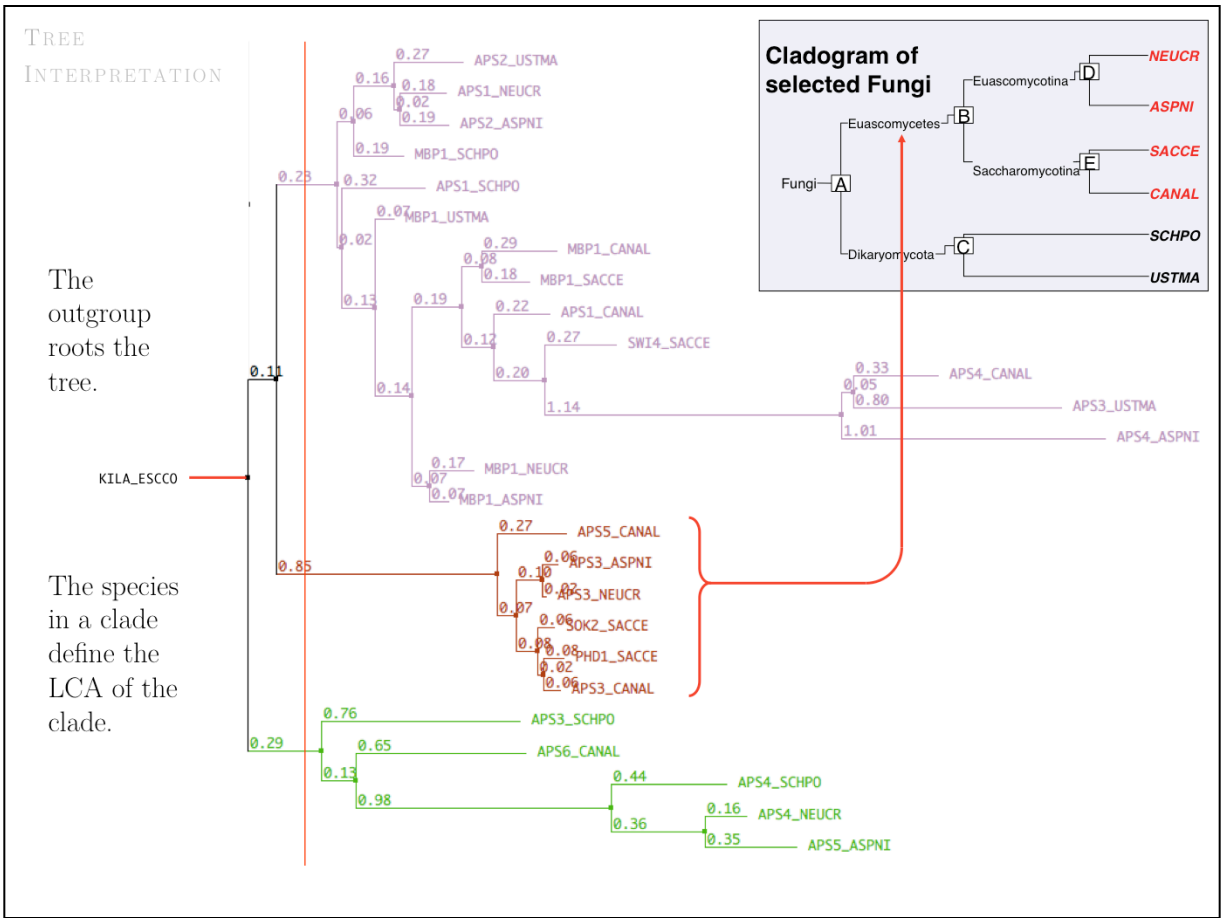 TREE
INTERPRETATION
The
outgroup
roots the
tree.
The species
in a clade
define the
LCA of the
clade.
KILA_ESCCO
0.11
0.23
0.06
0.16
0.27
APS2_USTMA
0.02
0.18
APS1_NEUCR
0.19
APS2_ASPNI
0.19
MBP1_SCHPO
0.02
0.32
APS1_SCHPO
0.13
0.07
MBP1_USTMA
0.14
0.19
0.08
0.29
MBP1_CANAL
0.18
MBP1_SACCE
0.12
0.22
APS1_CANAL
0.20
0.27
SWI4_SACCE
1.14
0.05
0.33
APS4_CANAL
0.80
APS3_USTMA
1.01
APS4_ASPNI
0.07
0.17
MBP1_NEUCR
0.07
MBP1_ASPNI
0.85
0.27
APS5_CANAL
0.07
0.10
0.06
APS3_ASPNI
0.02
APS3_NEUCR
0.08
0.06
SOK2_SACCE
0.02
0.08
PHD1_SACCE
0.06
APS3_CANAL
0.29
0.76
APS3_SCHPO
0.13
0.65
APS6_CANAL
0.98
0.44
APS4_SCHPO
0.36
0.16
APS4_NEUCR
0.35
APS5_ASPNI
Cladogram of
selected Fungi
Fungi
A
Euascomycetes
B
Euascomycotina
D
NEUCR
ASPNI
Saccharomycotina
E
SACCE
CANAL
Dikaryomycota
C
SCHPO
USTMA